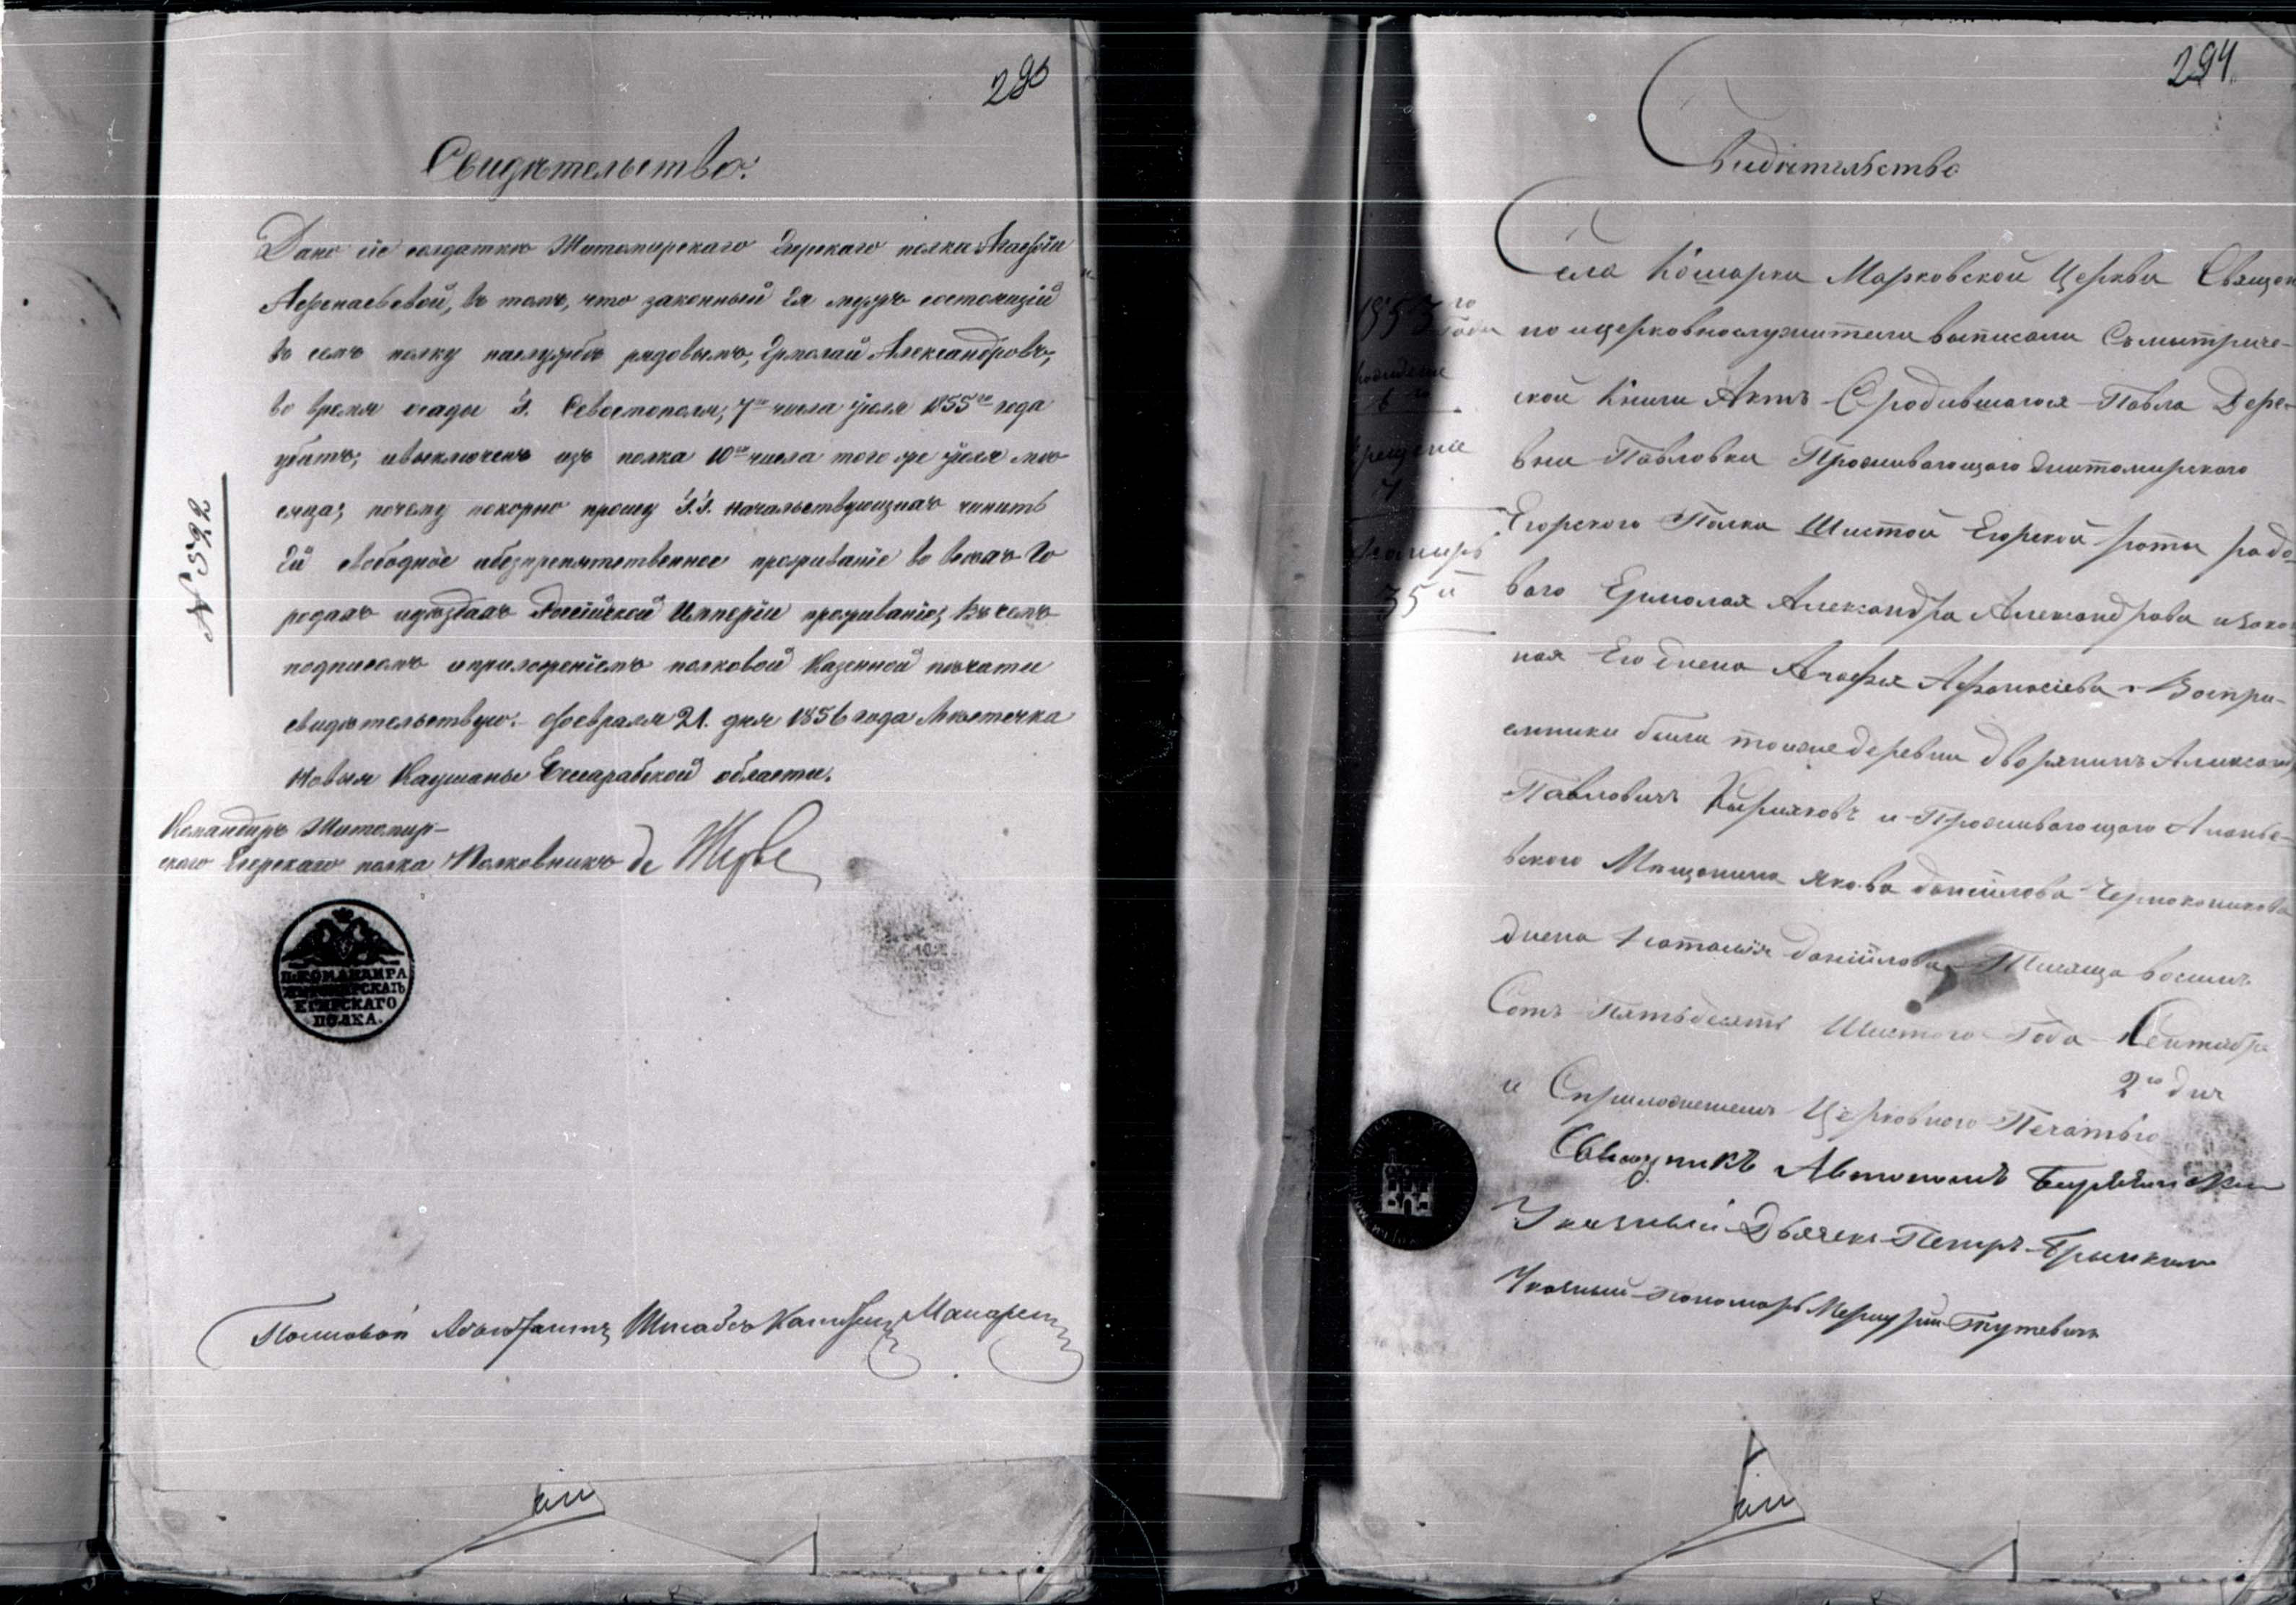 293
Свидѣтельство.
Дано сіе солдаткѣ Житомирскаго Егерскаго полка Агафіи
Афонасьевой, въ томъ, что законный Ея мужъ состоящій
въ семъ полку наслужбѣ рядовымъ, Ермолай Александровъ,
во время осады г. Севостополя, 7го числа Іюля 1855го года
убитъ, ивыключенъ изъ полка 10го числа того же Іюля мѣ
сяца; почему покорно прошу г.г. начальствующихъ чинить
Ей свободное ибезпрепятственное проживаніе во всѣхъ го
родахъ иуѣздахъ Россійской Имперіи проживаніе, въ чемъ
подписомъ иприложеніемъ полковой Казенной печати
свидѣтельствую. Февраля 21. дня 1856 года Мѣстечка
Новыя Каушаны Бессарабской области.
№ 322
Командиръ Житомир-
скаго Егерскаго полка Полковникъ де Жерве
КОМАНДИРА
ЖИТОМИРСКАГО
ЕГЕРСКАГО
ПОЛКА.
Полковой Адъютантъ Штабсъ Капитанъ
294.
Свидѣтельство
Села Кошарки Марковской Церкви Священ
но ицерковнослужители выписали Съмѣтриче-
ской Книги Актъ Сродившагося Павла Дере-
вни Павловки Проживающаго Житомирского
Егорского Полка Шистой Егорской роты рядо-
ваго Ермолая Александра Александрова изакон
ная Его Жена Агафія Афонасіева. Воспри-
емники были тоижедеревни дворянинъ Александ
Павловичъ Кирияковъ и Проживающаго Ананье-
вского Мѣщанина Якова Данiилова
Жена Наталія Данiилова Тисяща восимъ
Сотъ Пятьдесятъ Шистого Года Сентабра
2го дня
и Сприложениемъ Церковного Печатью
Священникъ Автономъ
Указный Дьячекъ Петръ
Указный пономарь Меркурий Тутевичъ